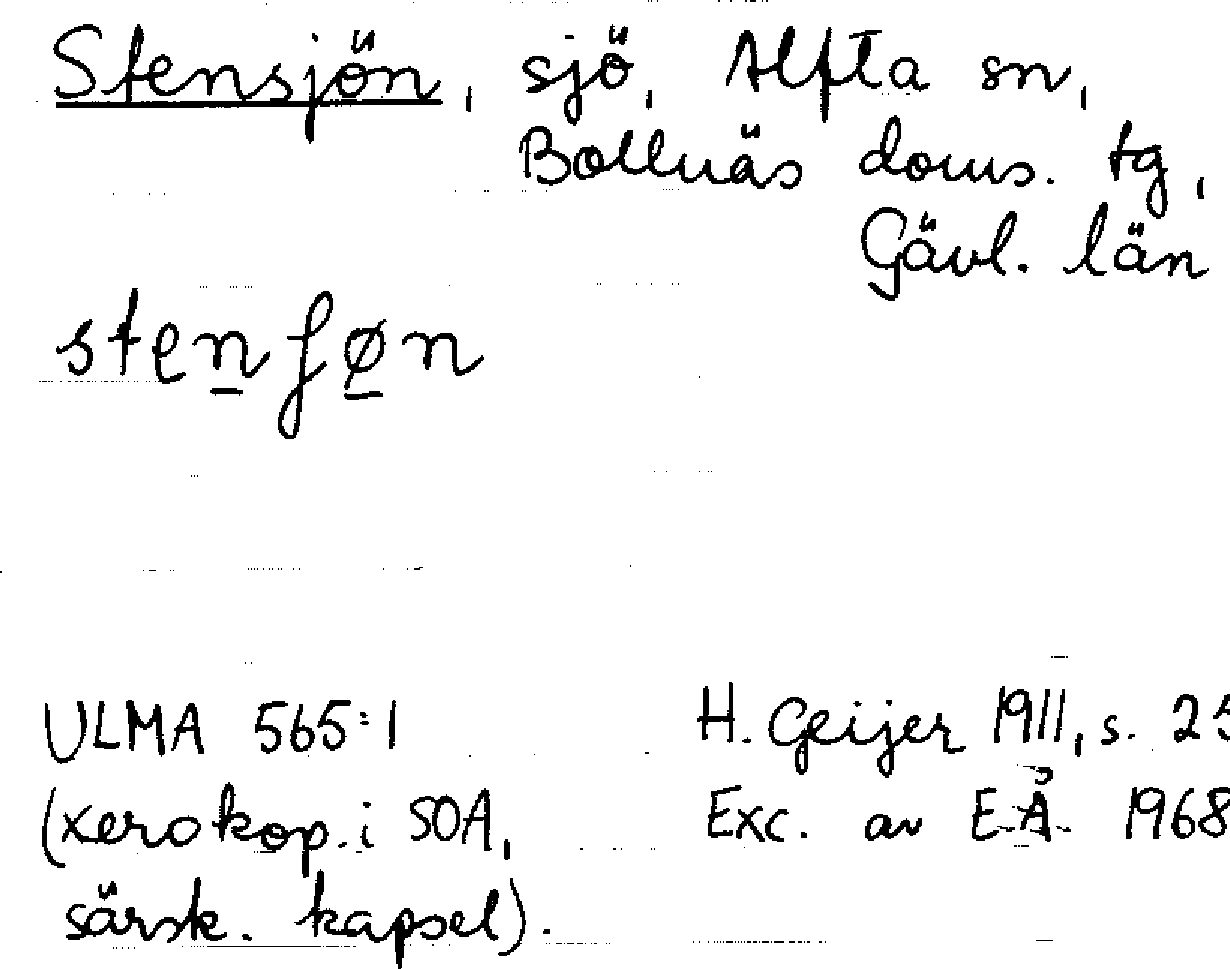 Stensjön, sjö, Alfta sn,
Bollnäs doms. tg,
Gävl. län
stenʃøn
ULMA 565:1
(xerokop. i SOA,
särsk. kapsel).
H. Geijer 1911, s. 25
Exc. av E.Å. 1968